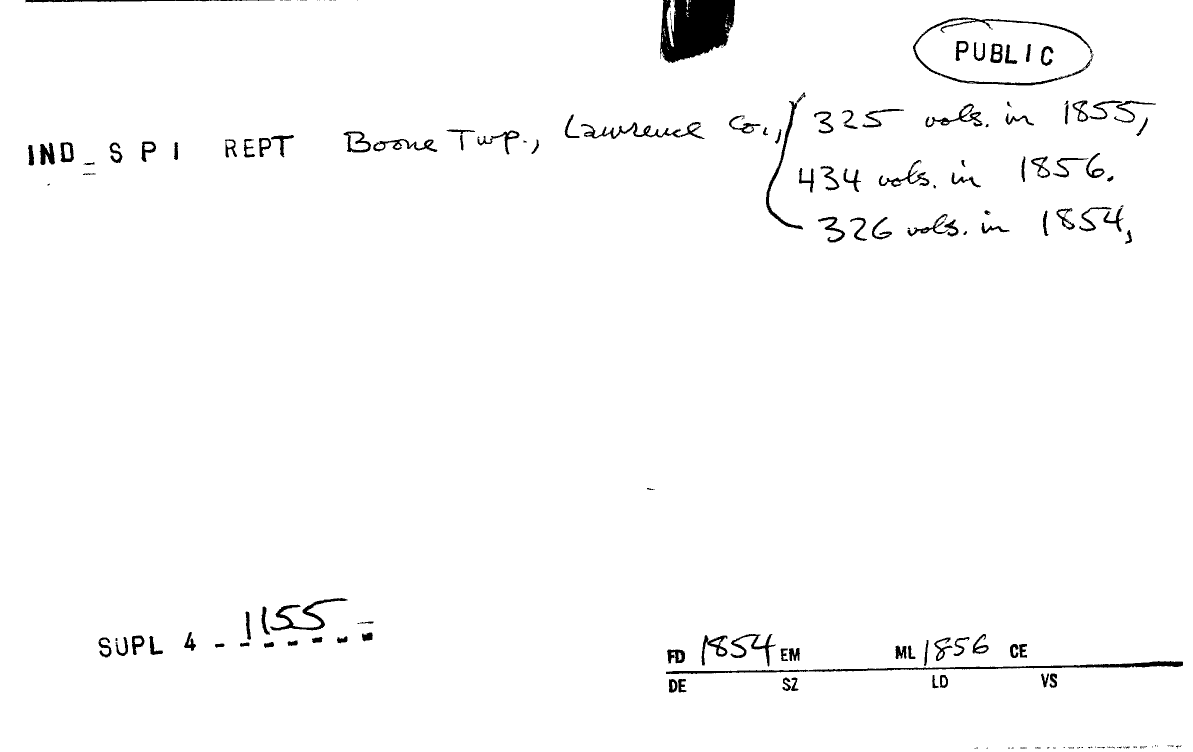 PUBLIC
IND_SPI REPT Boone Twp., Lawrence Co., 325 vols. in 1855,
434 vols. in 1856.
326 vols. in 1854,
SUPL 4 - 1155
FD 1854 EM ML 1856 CE
DE SZ LD VS